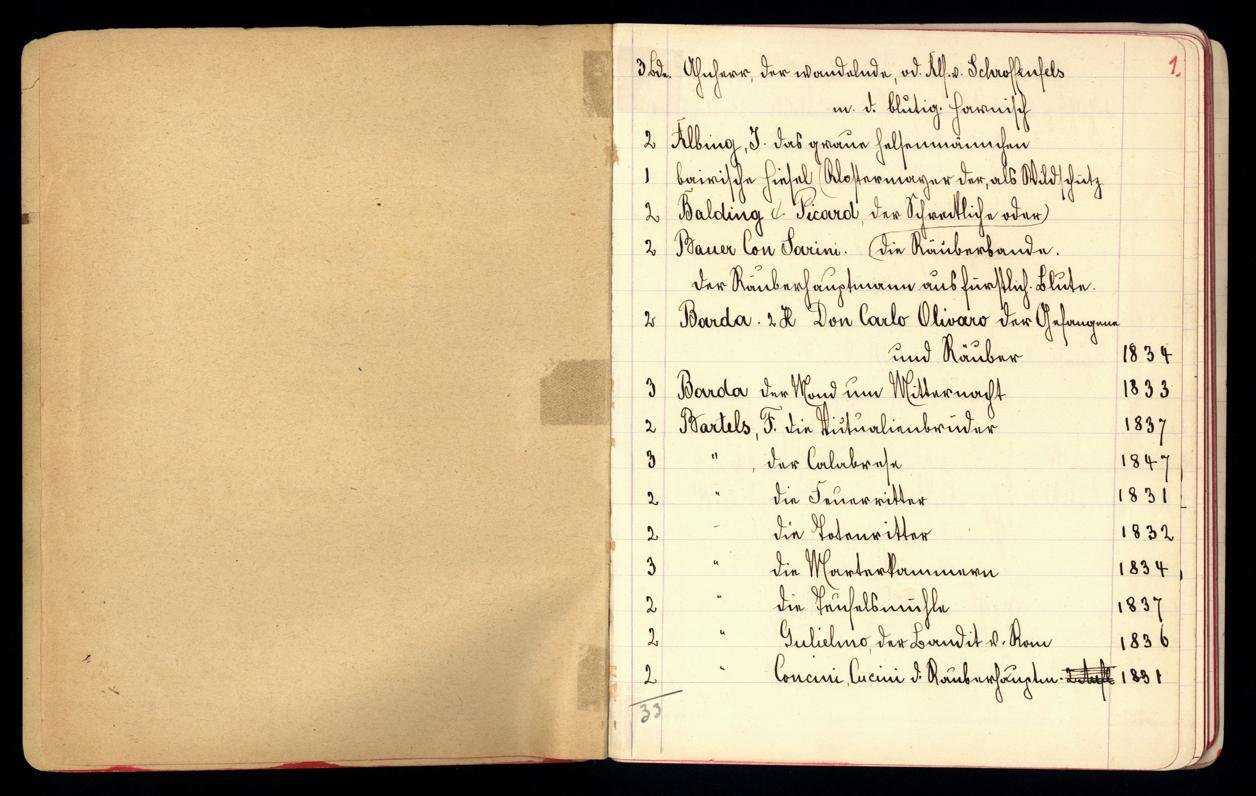 1.
3 Bde. Ahnherr, der wandelnde, od. Alf. v. Schroffenfels
m. d. blutig. Harnisch
2 Albing, J. das graue Felsenmännchen
1 bairische Hiesel (Klostermayer der, als Wildschütz
2 Balding & Picard, der Schreckliche oder)
2 Bauer Con Sarini. (die Räuberbande.
der Räuberhauptmann aus fürstlich. Blute.
2 Barda. 2 Don Carlo Olivaro der Gefangene
und Räuber 1834
3 Barda der Mond um Mitternacht 1833
2 Bartels, F. die Vitualienbrüder 1837
3 " , der Calabrese 1847
2 " die Feuerritter 1831
2 " die Totenritter 1832
3 " die Marterkammern 1834
2 " die Teufelsmühle 1837
2 " Gulielmo, der Bandit v. Rom 1836
2 " Concini, Cucini d. Räuberhauptm. 1831
33